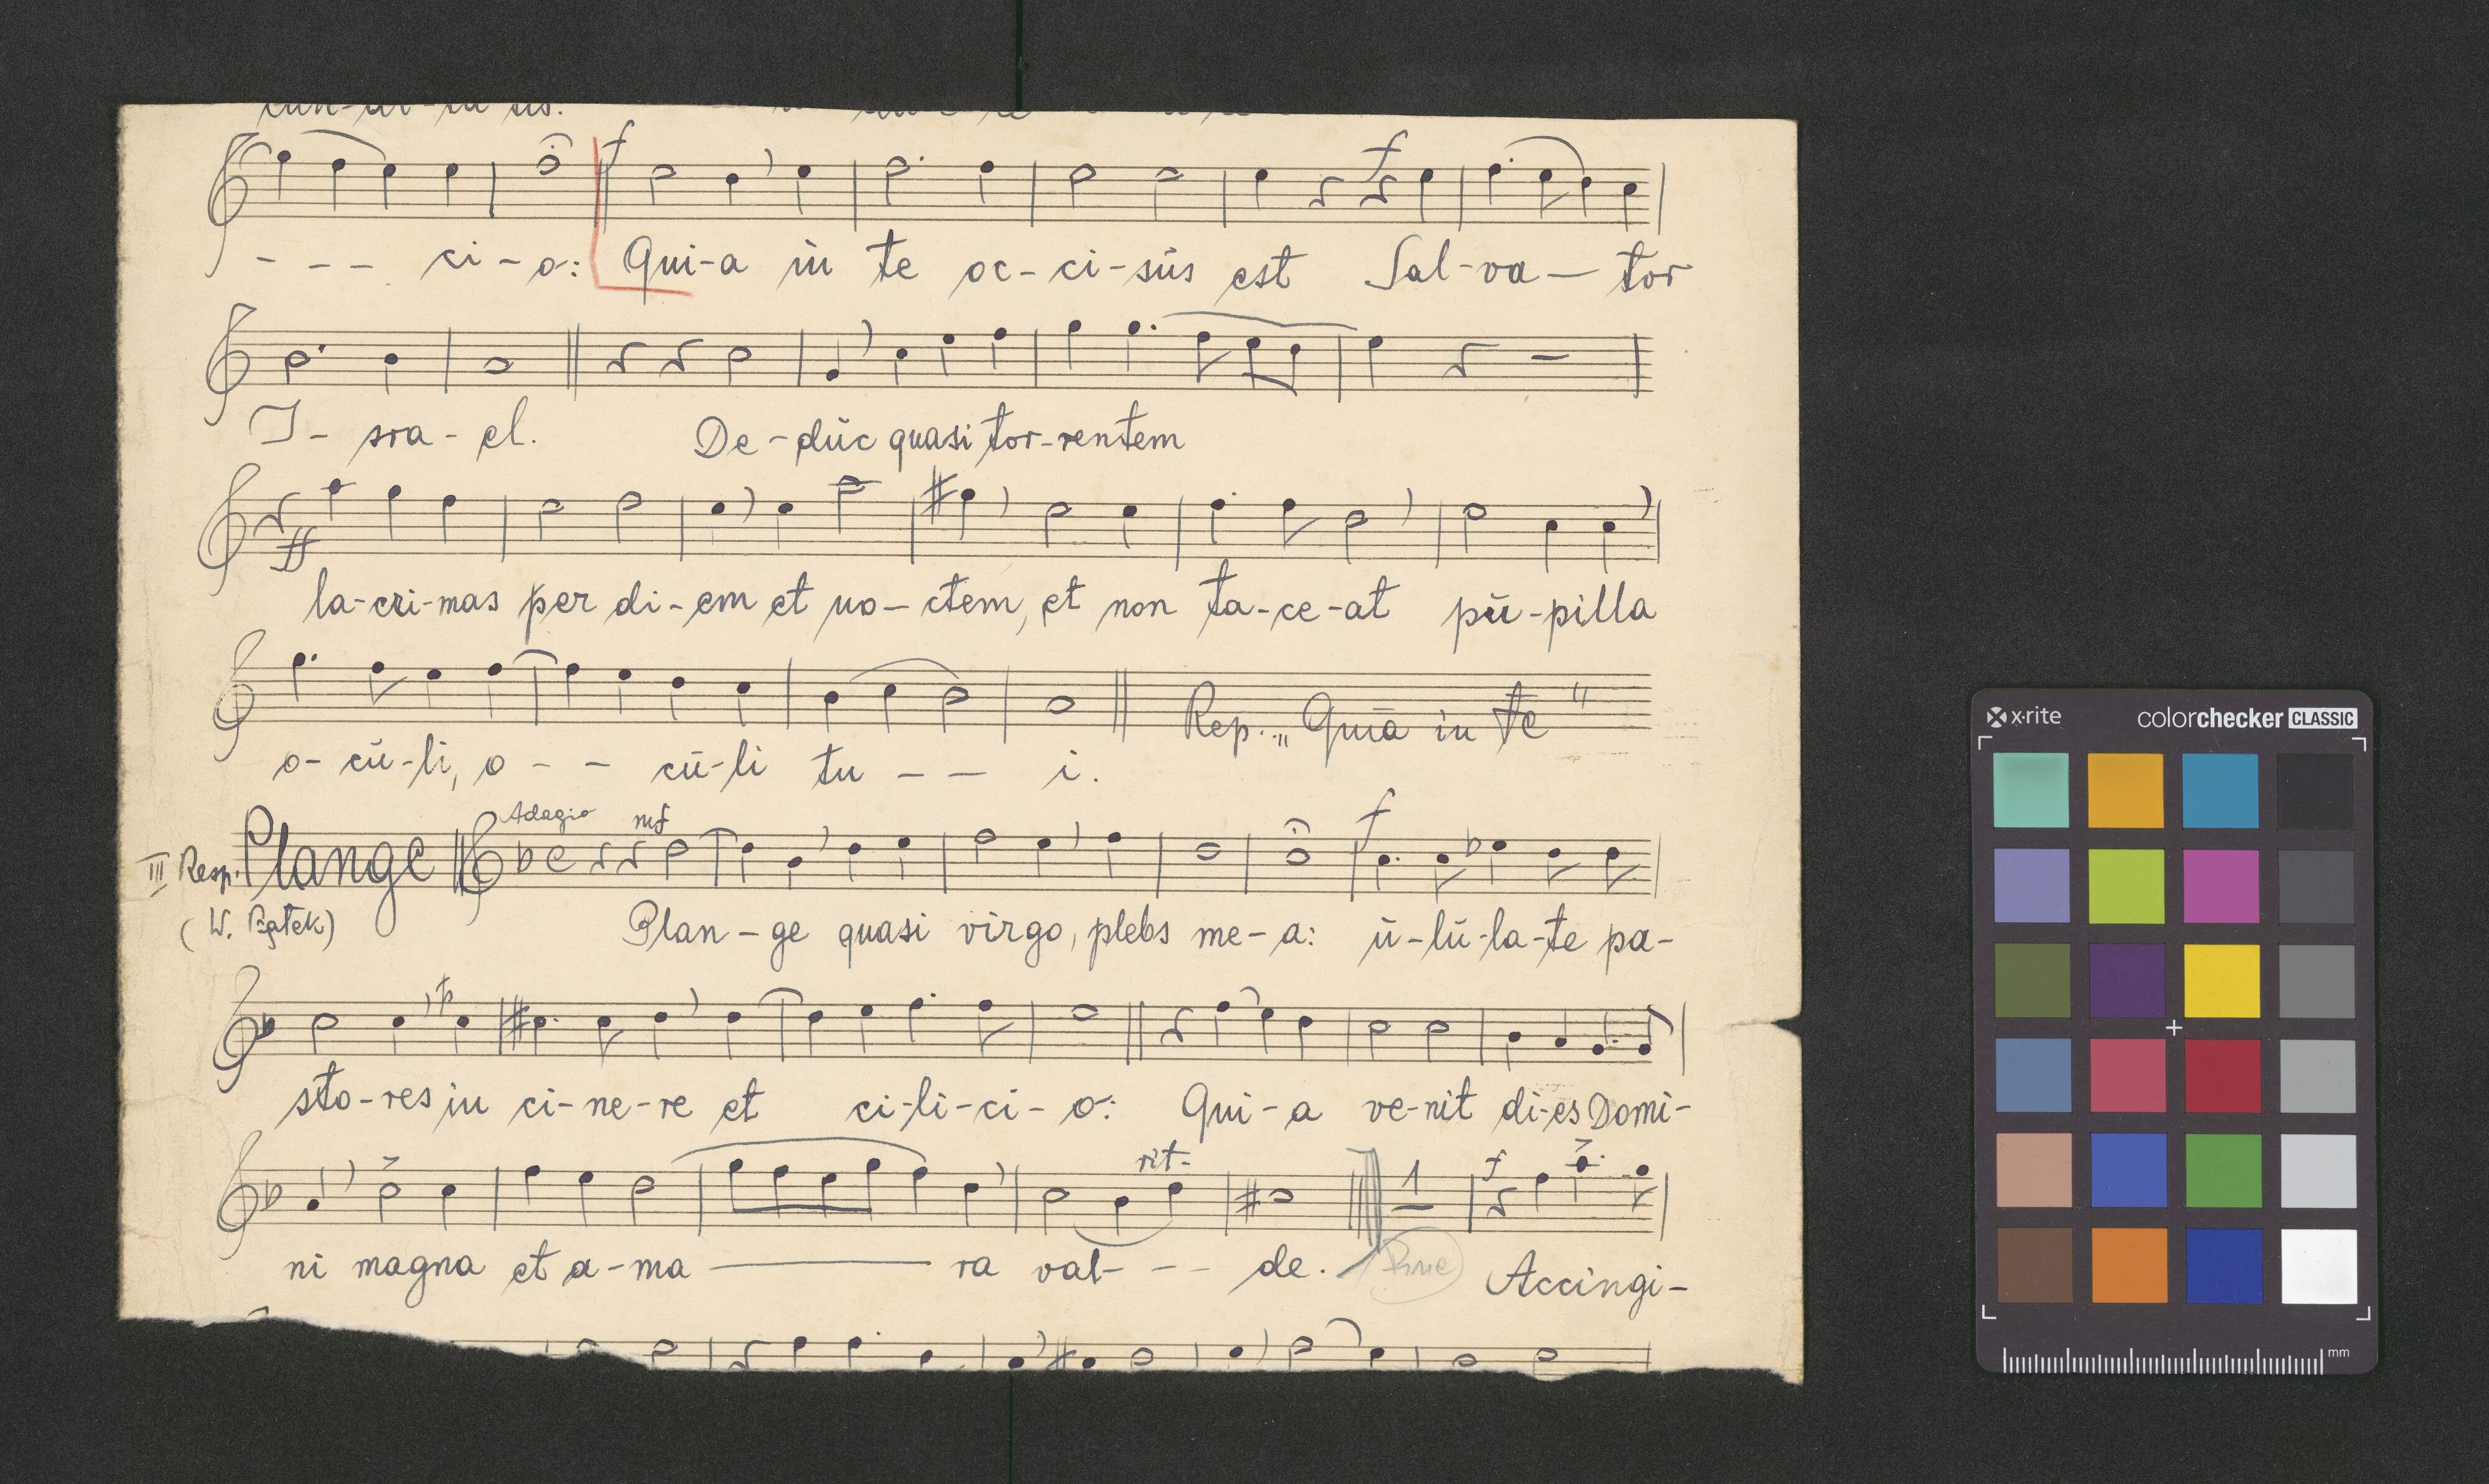 f f
- - - ci - o: Qui-a in te oc-ci-sūs est Sal-va — tor
I- sra-el. De-dūc quasi tor-rentem
ff
la-cri-mas per di-em et no-ctem, et non ta-ce-at pū-pilla
Rep. „Quiā in te"
o-cū-li, o - - cū-li tu - - i.
Adagio mf f
III Resp. Plange
(W. Pątek)
Plan-ge quasi virgo, plebs me-a: ū-lū-la-te pa-
sto-res in ci-ne-re et ci-li-ci-o: Qui-a ve-nit di-es Domi-
rit- 1 f
ni magna et a-ma — ra val- - - de. Accingi-
x·rite colorchecker CLASSIC
mm